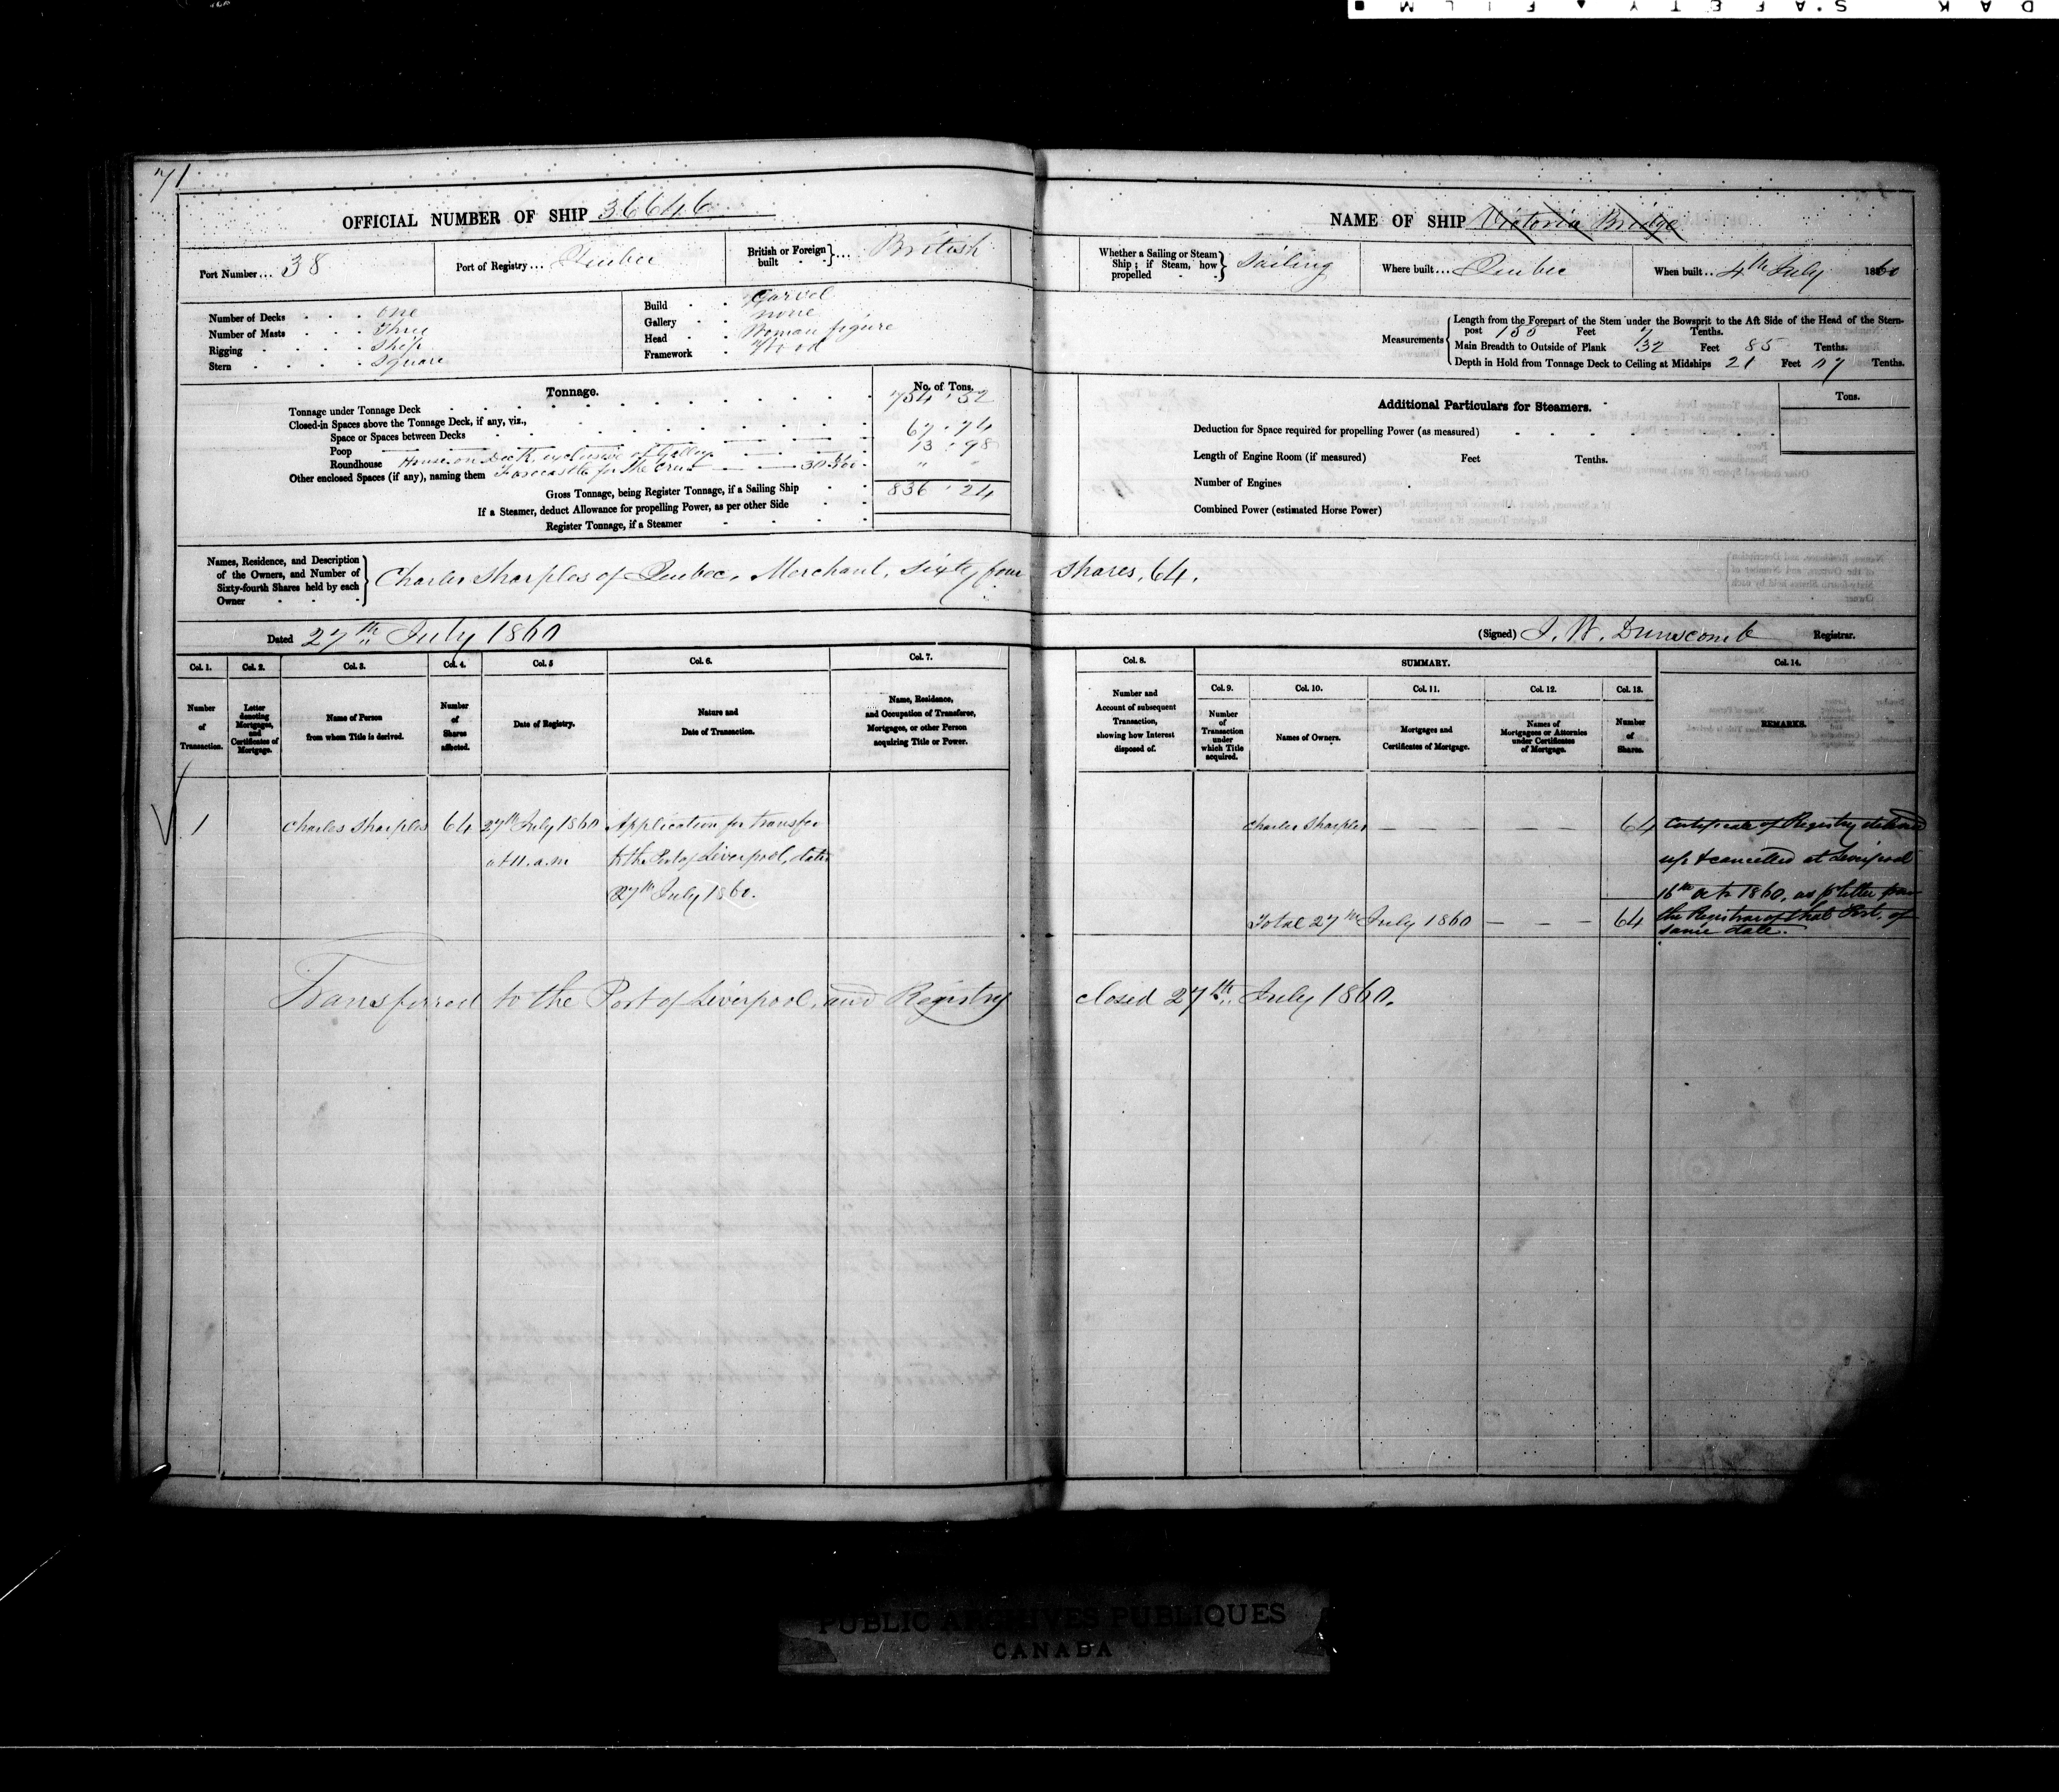 71
OFFICIAL NUMBER OF SHIP 36646
NAME OF SHIP Victoria Bridge
Port Number... 38
Port of Registry... Quebec
British or Foreign built - - } ... British
Whether a Sailing or Steam Ship; if Steam, how propelled - - } Sailing
Where built... Quebec
When built... 4th July 1860
Number of Decks - - - One
Number of Masts - - - Three
Rigging - - - - Ship
Stern - - - - Square
Build - - Carvel
Gallery - - none
Head - - Woman figure
Framework - Wood
Measurements
Length from the Forepart of the Stem under the Bowsprit to the Aft Side of the Head of the Stern-
post Feet Tenths.
Main Breadth to Outside of Plank 32 Feet 85 Tenths.
Depth in Hold from Tonnage Deck to Ceiling at Midships 21 Feet Tenths.
Tonnage.
No. of Tons.
Tonnage under Tonnage Deck 754 . 52
Closed-in Spaces above the Tonnage Deck, if any, viz.,
Space or Spaces between Decks 67 . 74
Poop 13 . 98
Roundhouse House on Deck, exclusive of Galley
Other enclosed Spaces (if any), naming them Forecastle for the Crew
Gross Tonnage, being Register Tonnage, if a Sailing Ship 836 . 24
If a Steamer, deduct Allowance for propelling Power, as per other Side
Register Tonnage, if a Steamer
Additional Particulars for Steamers.
Tons.
Deduction for Space required for propelling Power (as measured)
Length of Engine Room (if measured) Feet Tenths.
Number of Engines
Combined Power (estimated Horse Power)
Names, Residence, and Description
of the Owners, and Number of
Sixty-fourth Shares held by each
Owner - - -
Charles Sharples of Quebec, Merchant, Sixty four shares, 64.
Dated 27th July 1860
(Signed) J. W. Dunscomb Registrar.
Col. 1. Col. 2. Col. 3. Col. 4. Col. 5 Col. 6. Col. 7.
Number of Transaction.
Letter denoting Mortgages, and Certificates of Mortgage.
Name of Person from whom Title is derived.
Number of Shares affected.
Date of Registry.
Nature and Date of Transaction.
Name, Residence, and Occupation of Transferee, Mortgagee, or other Person acquiring Title or Power.
Col. 8. SUMMARY. Col. 14.
Col. 9. Col. 10. Col. 11. Col. 12. Col. 13.
Number and Account of subsequent Transaction, showing how Interest disposed of.
Number of Transaction under which Title acquired.
Names of Owners.
Mortgages and Certificates of Mortgage.
Names of Mortgagees or Attornies under Certificates of Mortgage.
Number of Shares.
REMARKS.
1 Charles Sharples 64 27th July 1860 Application for transfer
at 11. a.m to the Port of Liverpool, dated
27th July 1860.
Charles Sharples — — — — 64
Total 27th July 1860 — — — 64
Certificate of Registry delivered
up & cancelled at Liverpool
16th Octr 1860, as pr letter from
the Registrar of that Port, of
same date.
Transferred to the Port of Liverpool, and Registry closed 27th July 1860.
PUBLIC ARCHIVES PUBLIQUES
CANADA